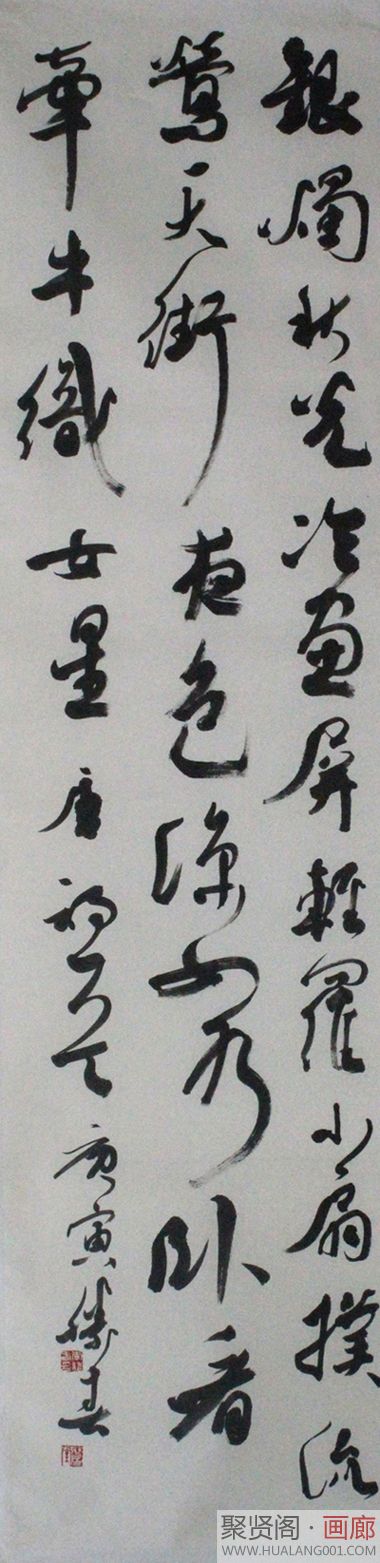 銀燭秋光冷畫屏輕羅小扇撲流
鶯天街夜色涼如水卧看
牽牛織女星 唐詩 庚寅 勝春
聚贤阁·画廊
WWW.HUALANG001.COM